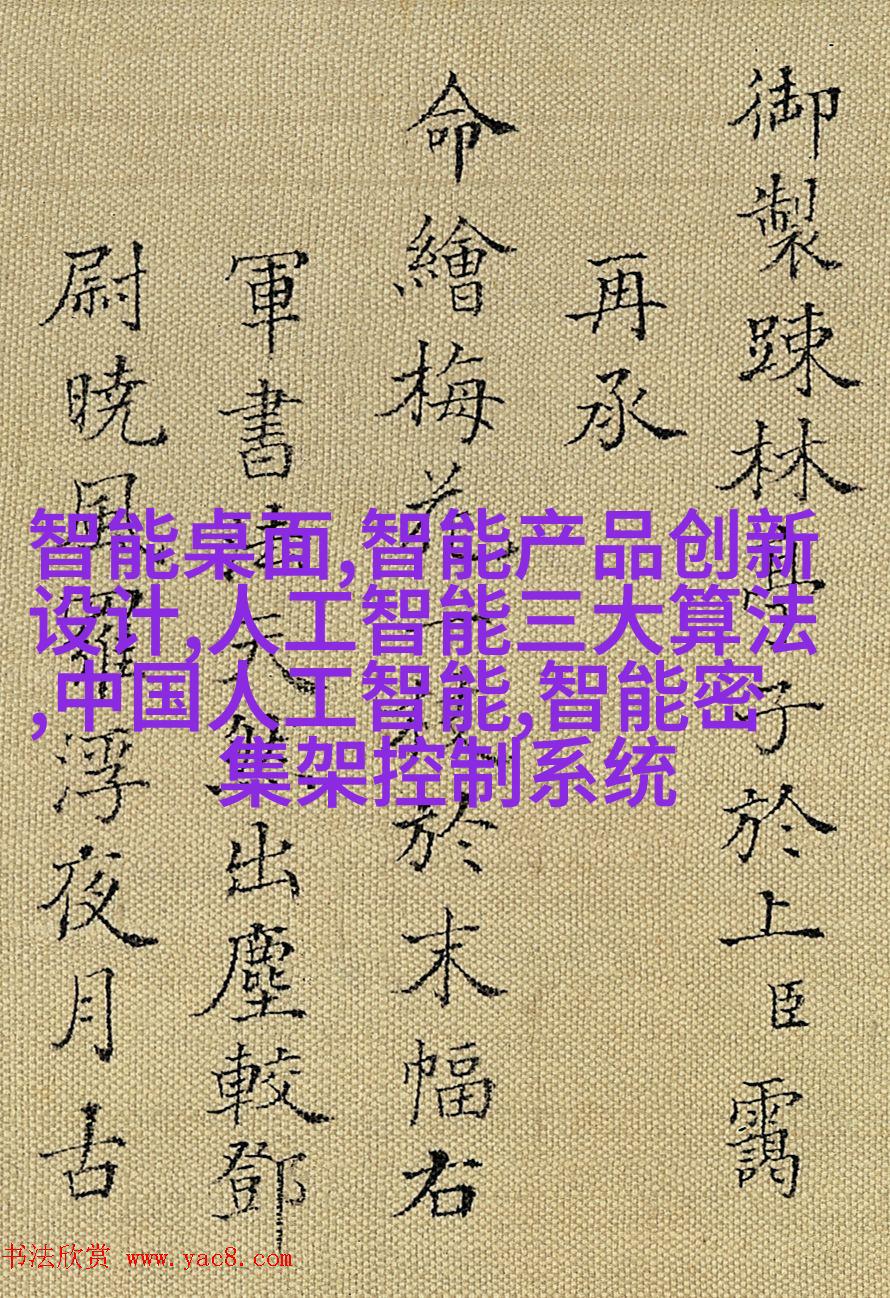 御製踈林子於上臣靄
再承
命繪梅花於末幅右
軍書法天出塵較鄧
尉曉風羅浮夜月古
智能桌面,智能产品创新
设计,人工智能三大算法
,中国人工智能,智能密
集架控制系统
书法欣赏 www.yac8.com